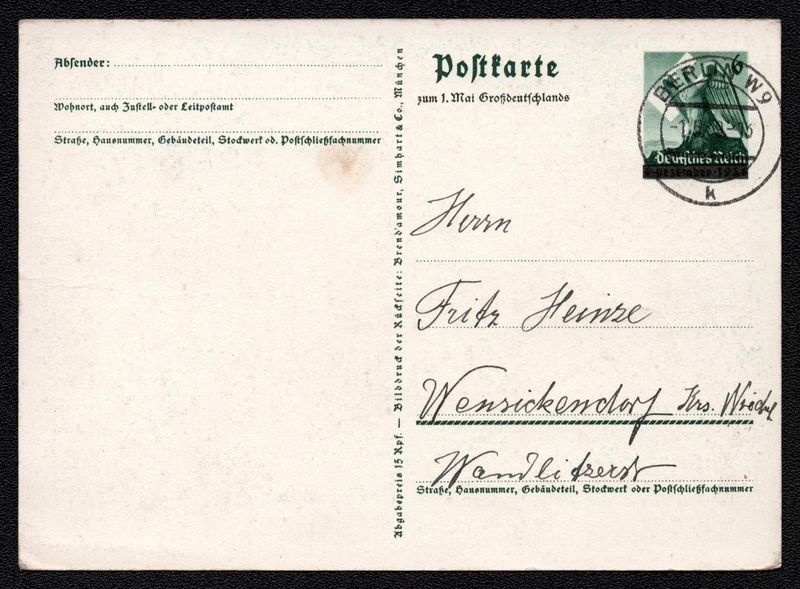 Absender:
Wohnort, auch Zustell- oder Leitpostamt
Straße, Hausnummer, Gebäudeteil, Stockwerk od. Postschließfachnummer
Abgabepreis 15 Rpf. — Bilddruck der Rückseite: Brend'amour, Simhart & Co., München
Postkarte
zum 1. Mai Großdeutschlands
BERLIN W9
Deutsches Reich
k
Herrn
Fritz Heinze
Wensickendorf Krs.
Wandlitzerstr
Straße, Hausnummer, Gebäudeteil, Stockwerk oder Postschließfachnummer